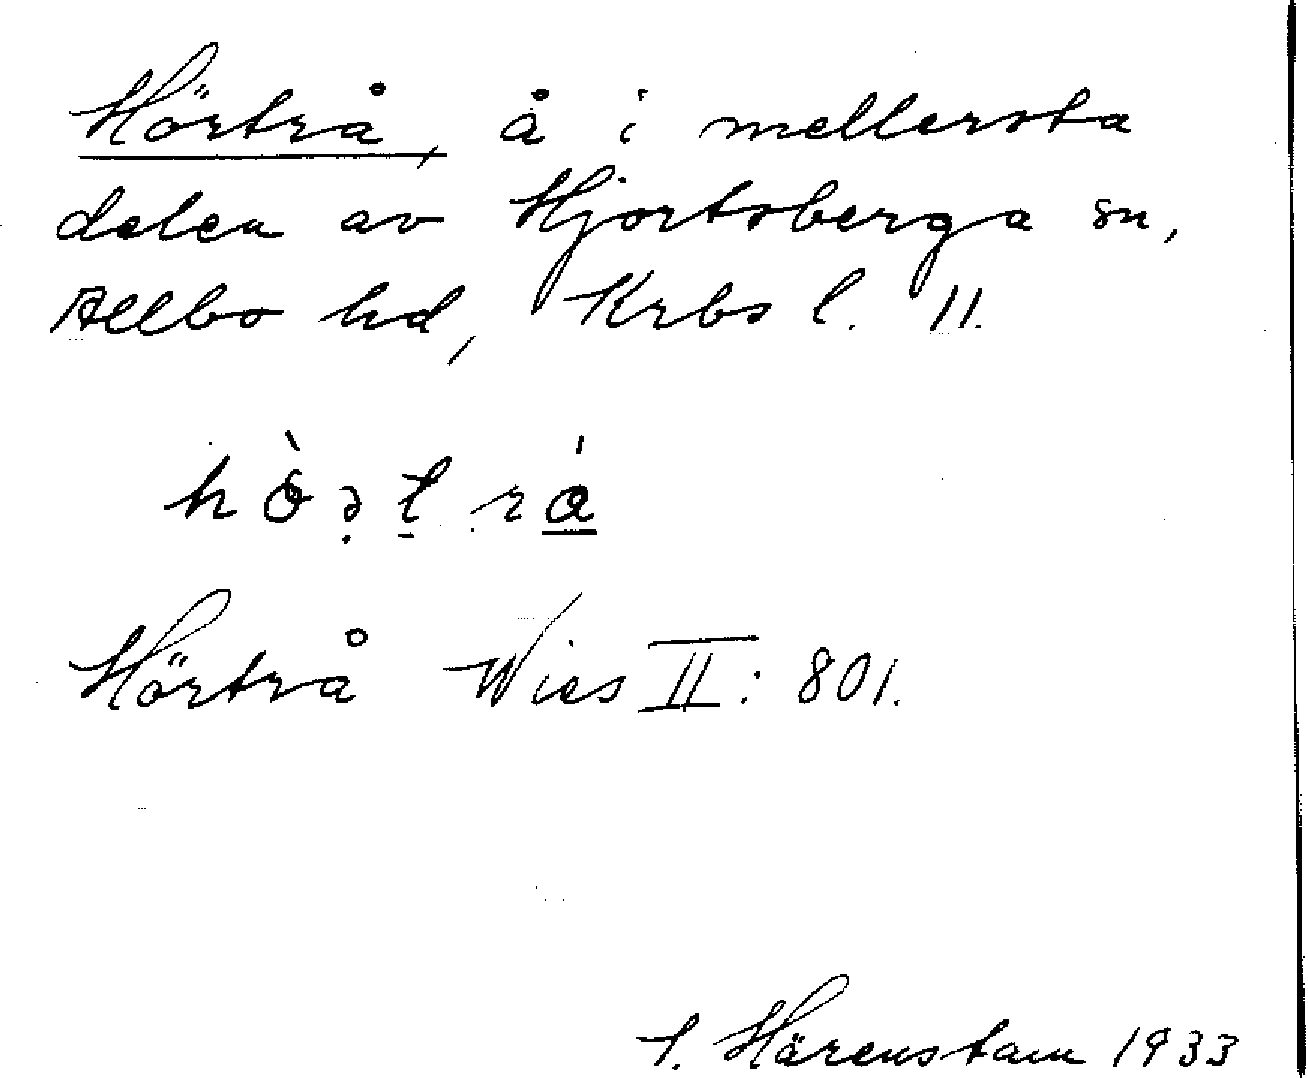 Hörtrå, å i mellersta
delen av Hjortsberga sn,
Allbo hd, Krbs l. 11.
Hörtrå Wies II: 801.
Härenstam 1933